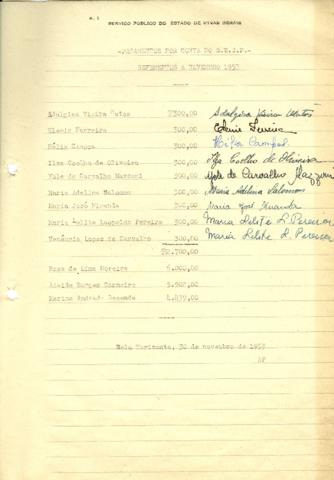 SERVIÇO PÚBLICO DO ESTADO DE MINAS GERAIS
-PAGAMENTOS POR CONTA DO
REFERENTES A NOVEMBRO 1953
Adalgisa Vieira Matos 300,00 Adalgisa Vieira Matos
Elenir Ferreira 300,00 Ferreira
Hélia Campos 300,00 Hélia Campos
Ilma Coelho de Oliveira 300,00 Ilza Coelho de Oliveira
Yale de Carvalho Mazzoni 300,00 Yale de Carvalho Mazzoni
Maria Adelina Salomon 300,00 Maria Adelina Salomon
Maria José Miranda 300,00 Maria José Miranda
Maria Leopoldo Pereira 300,00 Maria Lilite L. Pereira
Venâncio Lopes de Carvalho 300,00 Maria Lilite L. Pereira
2.700,00
Rosa de Lima Moreira 6.000,00
Borges Carneiro
Andrade Resende
Belo Horizonte, 30 de novembro de 1953